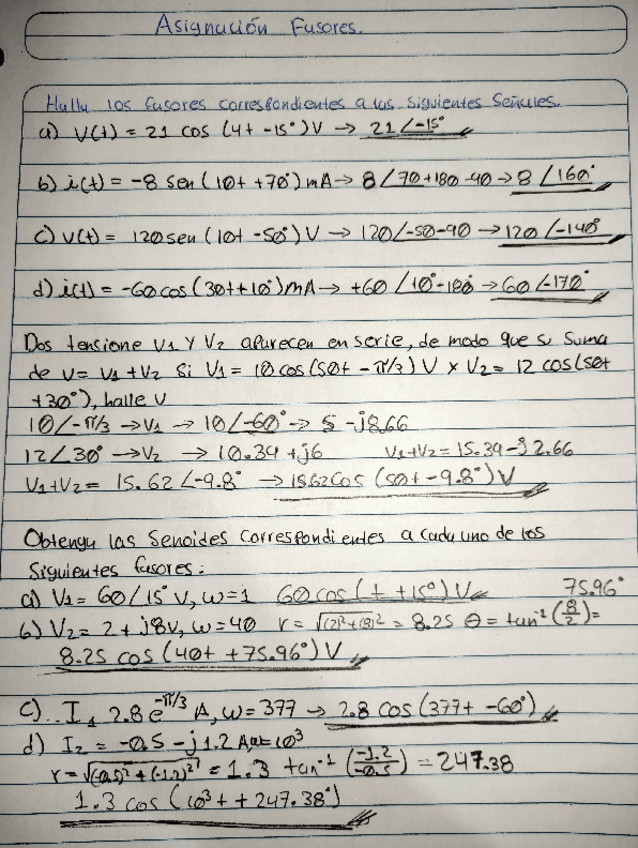 Asignación Fasores.
Halla los fasores correspondientes a las siguientes señales
a) V(t) = 21 cos (4t -15°)V → 21∠-15°
b) i(t) = -8 sen (10t +70°) mA → 8∠70+180-90 → 8∠160°
c) v(t) = 120 sen (10t -50°) V → 120∠-50-90 → 120∠-140°
d) i(t) = -60 cos (30t+10°) mA → +60∠10°-180 → 60∠-170°
Dos tensione V1 Y V2 aparecen en serie, de modo que su suma
de v = V1 + V2 si V1 = 10 cos (50t - π/3) V x V2 = 12 cos (50t
+30°), halle V
10∠-π/3 → V1 → 10∠-60° → 5 -j8.66
12∠30° → V2 → 10.39 + j6 V1+V2 = 15.39 -j2.66
V1+V2 = 15.62∠-9.8° → 15.62 Cos (50t -9.8°)V
Obtenga las Senoides correspondientes a cada uno de los
siguientes fasores:
a) V1 = 60∠15° V, ω=1 60 cos (t +15°) V 75.96°
b) V2 = 2 + j8V, ω=40 r = √(2)²+(8)² = 8.25 θ = tan⁻¹ (8/2) =
8.25 cos (40t +75.96°) V
c) I1 2.8 e^-π/3 A, ω = 377 → 2.8 cos (377t -60°)
d) I2 = -0.5 - j1.2 A ω=10³
r = √(-0.5)² + (-1.2)² = 1.3 tan⁻¹ (-1.2/-0.5) = 247.38
1.3 cos (10³t + 247.38°)